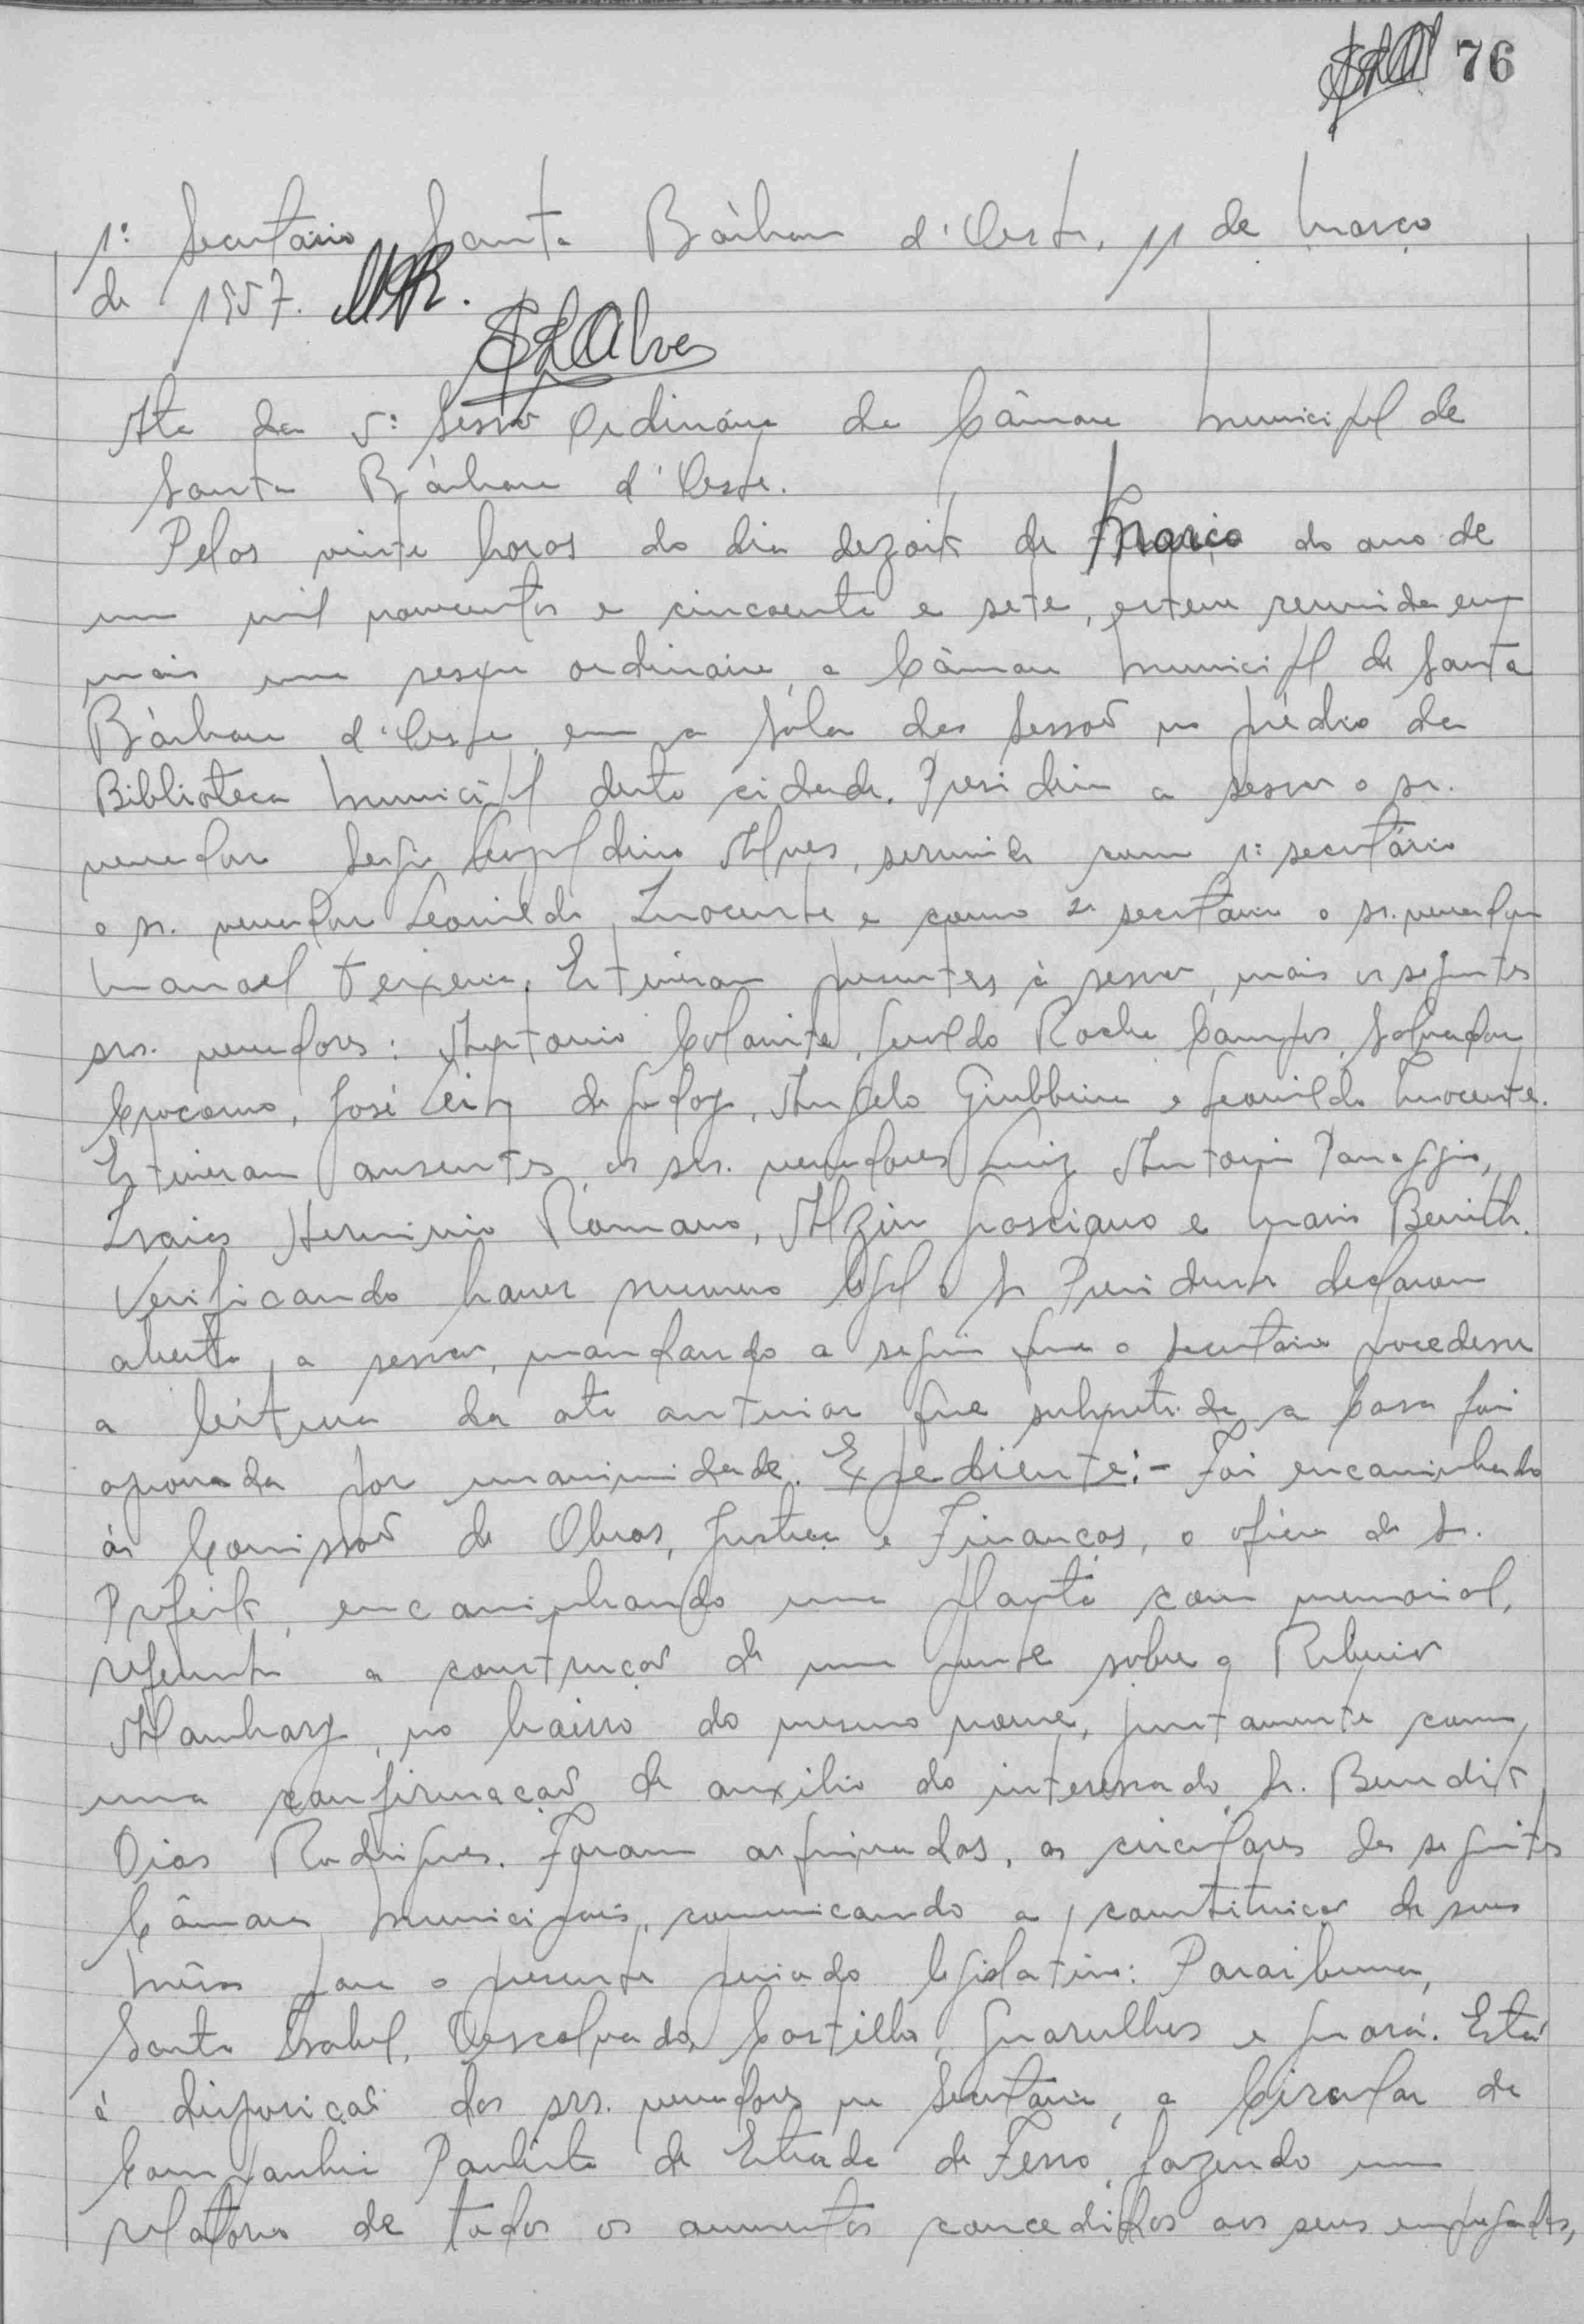 76
1º Secretário Santa Bárbara d'Oeste, 11 de Março
de 1957.
SLAlves
Ata da 5ª Sessão Ordinária da Câmara Municipal de
Santa Bárbara d'Oeste.
Pelas vinte horas do dia dezoito de Março do ano de
um mil novecentos e cincoenta e sete, esteve reunida em
mais uma sessão ordinaria, a Câmara Municipal de Santa
Bárbara d'Oeste, em a Sala das Sessões no prédio da
Biblioteca Municipal desta cidade. Presidiu a sessão o sr.
vereador Sergio Leopoldino Alves, servindo como 1º secretário
o sr. vereador Leonildo Inocente e como 2º secretario o sr. vereador
Manoel Teixeira. Estiveram presentes à sessão, mais os seguintes
srs. vereadores: Antonio Colamita, Geraldo Rocha Campos, Salvador
José Leite de Godoy, Angelo Giubbina e Leonildo Inocente.
Estiveram ausentes os srs. vereadores Luiz Antonio Panaggio,
Izaias Herminio Romano, Alziro Gosciano e Mario Benito.
Verificando haver numero legal o Sr Presidente declarou
aberta a sessão, mandando a seguir que o secretario procedesse
a leitura da ata anterior que submetida a Casa foi
aprovada por unanimidade. Expediente:- Foi encaminhado
às Comissões de Obras, Justiça e Finanças, o oficio do Sr.
Prefeito, encaminhando uma planta com memorial,
referente a construção de uma ponte sobre o Ribeirão
Alambary, no bairro do mesmo nome, juntamente com
uma confirmação de auxilio do interessado, Sr. Benedito
Dias Rodrigues. Foram arquivadas, as circulares das seguintes
Câmaras Municipais, comunicando a constituição de suas
Mêsas para o presente periodo legislativo: Paraibuna,
Santa Isabel, Descalvado, Castilho, Guarulhos e Guará. Está
à disposição dos srs. vereadores na Secretaria, a Circular da
Companhia Paulista de Estrada de Ferro, fazendo um
relatorio de todos os aumentos concedidos aos seus empregados,